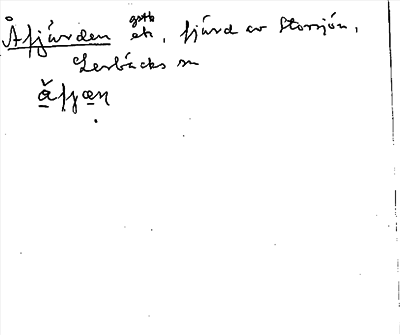 Åfjärden gotb ek., fjärd av Storsjön,
Lerbäcks sn
å̌fjæɳ